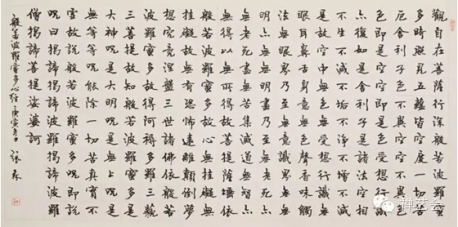 觀自在菩薩行深般若波羅蜜
多時照見五蘊皆空度一切苦
厄舍利子色不異空空不異色
色即是空空即是色受想行識
亦復如是舍利子是諸法空相
不生不滅不垢不淨不增不減
是故空中無色無受想行識無
眼耳鼻舌身意無色聲香味觸
法無眼界乃至無意識界無無
明亦無無明盡乃至無老死亦
無老死盡無苦集滅道無智亦
無得以無所得故菩提薩埵依
般若波羅蜜多故心無罣礙無
罣礙故無有恐怖遠離顛倒夢
想究竟涅槃三世諸佛依般若
波羅蜜多故得阿耨多羅三藐
三菩提故知般若波羅蜜多是
大神咒是大明咒是無上咒是
無等等咒能除一切苦真實不
虛故說般若波羅蜜多咒即說
咒曰揭諦揭諦波羅揭諦波羅
僧揭諦菩提娑婆訶
般若波羅蜜多心經 庚寅